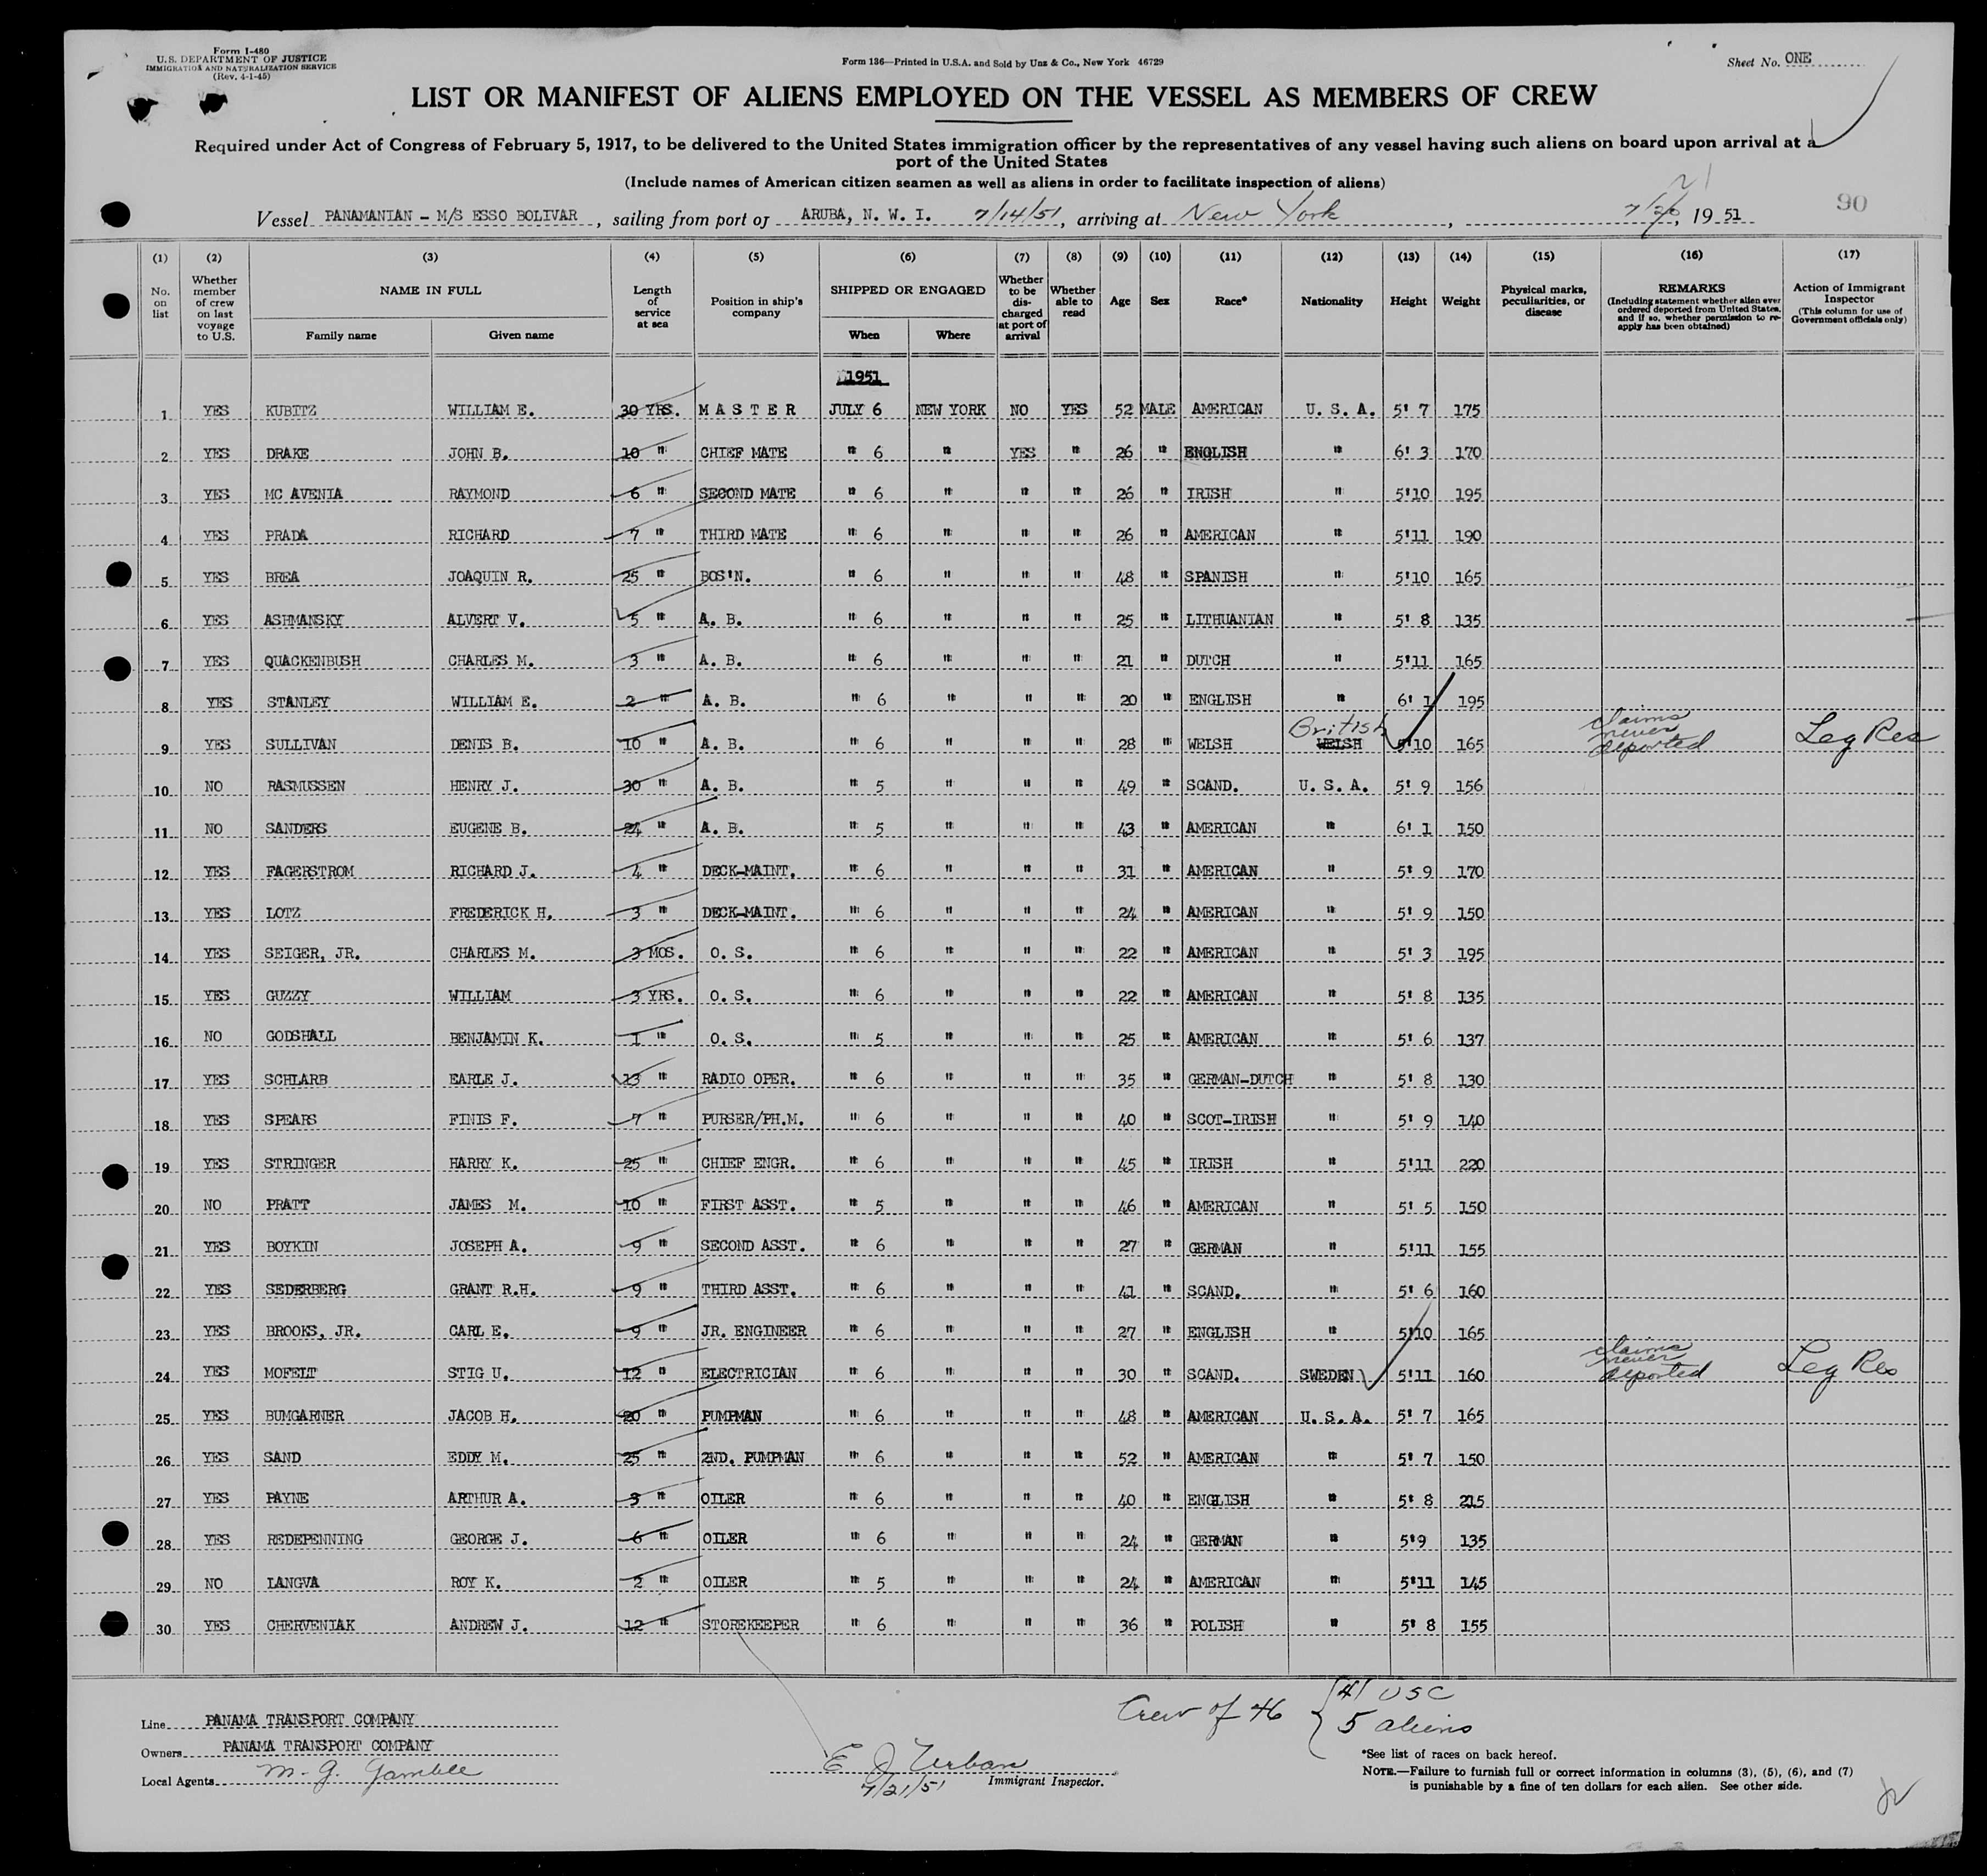 Form I-480
U.S. DEPARTMENT OF JUSTICE
IMMIGRATION AND NATURALIZATION SERVICE
(Rev. 4-1-45)
Form 136—Printed in U.S.A. and Sold by Unz & Co., New York 46729
Sheet No. ONE
LIST OR MANIFEST OF ALIENS EMPLOYED ON THE VESSEL AS MEMBERS OF CREW
Required under Act of Congress of February 5, 1917, to be delivered to the United States immigration officer by the representatives of any vessel having such aliens on board upon arrival at a
port of the United States
(Include names of American citizen seamen as well as aliens in order to facilitate inspection of aliens)
90
Vessel PANAMANIAN - M/S ESSO BOLIVAR, sailing from port of ARUBA, N. W. I. 7/14/51, arriving at New York, 7/20, 1951
21
(1) No. on list
(2) Whether member of crew on last voyage to U.S.
(3) NAME IN FULL Family name Given name
(4) Length of service at sea
(5) Position in ship's company
(6) SHIPPED OR ENGAGED When Where
(7) Whether to be discharged at port of arrival
(8) Whether able to read
(9) Age
(10) Sex
(11) Race*
(12) Nationality
(13) Height
(14) Weight
(15) Physical marks, peculiarities, or disease
(16) REMARKS (Including statement whether alien ever ordered deported from United States, and if so, whether permission to re-apply has been obtained)
(17) Action of Immigrant Inspector (This column for use of Government officials only)
1951
1 YES KUBITZ WILLIAM E. 30 YRS. MASTER JULY 6 NEW YORK NO YES 52 MALE AMERICAN U. S. A. 5' 7 175
2 YES DRAKE JOHN B. 10 " CHIEF MATE " 6 " YES " 26 " ENGLISH " 6' 3 170
3 YES MC AVENIA RAYMOND 6 " SECOND MATE " 6 " " " 26 " IRISH " 5'10 195
4 YES PRADA RICHARD 7 " THIRD MATE " 6 " " " 26 " AMERICAN " 5'11 190
5 YES BREA JOAQUIN R. 25 " BOS'N. " 6 " " " 48 " SPANISH " 5'10 165
6 YES ASHMANSKY ALVERT V. 5 " A. B. " 6 " " " 25 " LITHUANIAN " 5' 8 135
7 YES QUACKENBUSH CHARLES M. 3 " A. B. " 6 " " " 21 " DUTCH " 5'11 165
8 YES STANLEY WILLIAM E. 2 " A. B. " 6 " " " 20 " ENGLISH " 6' 1 195
9 YES SULLIVAN DENIS B. 10 " A. B. " 6 " " " 28 " WELSH WELSH British 5'10 165 claims never deported Leg Res
10 NO RASMUSSEN HENRY J. 30 " A. B. " 5 " " " 49 " SCAND. U. S. A. 5' 9 156
11 NO SANDERS EUGENE B. 24 " A. B. " 5 " " " 43 " AMERICAN " 6' 1 150
12 YES FAGERSTROM RICHARD J. 4 " DECK-MAINT. " 6 " " " 31 " AMERICAN " 5' 9 170
13 YES LOTZ FREDERICK H. 3 " DECK-MAINT. " 6 " " " 24 " AMERICAN " 5' 9 150
14 YES SEIGER, JR. CHARLES M. 3 MOS. O. S. " 6 " " " 22 " AMERICAN " 5' 3 195
15 YES GUZZY WILLIAM 3 YRS. O. S. " 6 " " " 22 " AMERICAN " 5' 8 135
16 NO GODSHALL BENJAMIN K. 1 " O. S. " 5 " " " 25 " AMERICAN " 5' 6 137
17 YES SCHLARB EARLE J. 13 " RADIO OPER. " 6 " " " 35 " GERMAN-DUTCH " 5' 8 130
18 YES SPEARS FINIS F. 7 " PURSER/PH.M. " 6 " " " 40 " SCOT-IRISH " 5' 9 140
19 YES STRINGER HARRY K. 25 " CHIEF ENGR. " 6 " " " 45 " IRISH " 5'11 220
20 NO PRATT JAMES M. 10 " FIRST ASST. " 5 " " " 46 " AMERICAN " 5' 5 150
21 YES BOYKIN JOSEPH A. 9 " SECOND ASST. " 6 " " " 27 " GERMAN " 5'11 155
22 YES SEDERBERG GRANT R.H. 9 " THIRD ASST. " 6 " " " 41 " SCAND. " 5' 6 160
23 YES BROOKS, JR. CARL E. 9 " JR. ENGINEER " 6 " " " 27 " ENGLISH " 5'10 165
24 YES MOFELT STIG U. 12 " ELECTRICIAN " 6 " " " 30 " SCAND. SWEDEN 5'11 160 claims never deported Leg Res
25 YES BUMGARNER JACOB H. 20 " PUMPMAN " 6 " " " 48 " AMERICAN U. S. A. 5' 7 165
26 YES SAND EDDY M. 25 " 2ND. PUMPMAN " 6 " " " 52 " AMERICAN " 5' 7 150
27 YES PAYNE ARTHUR A. 3 " OILER " 6 " " " 40 " ENGLISH " 5' 8 215
28 YES REDEPENNING GEORGE J. 6 " OILER " 6 " " " 24 " GERMAN " 5'9 135
29 NO LANGVA ROY K. 2 " OILER " 5 " " " 24 " AMERICAN " 5'11 145
30 YES CHERVENIAK ANDREW J. 12 " STOREKEEPER " 6 " " " 36 " POLISH " 5' 8 155
Line PANAMA TRANSPORT COMPANY
Owners PANAMA TRANSPORT COMPANY
Local Agents M. G. Gamble
E J Urban
7/21/51 Immigrant Inspector.
Crew of 46 { 41 USC
5 aliens
*See list of races on back hereof.
NOTE.—Failure to furnish full or correct information in columns (3), (5), (6), and (7)
is punishable by a fine of ten dollars for each alien. See other side.